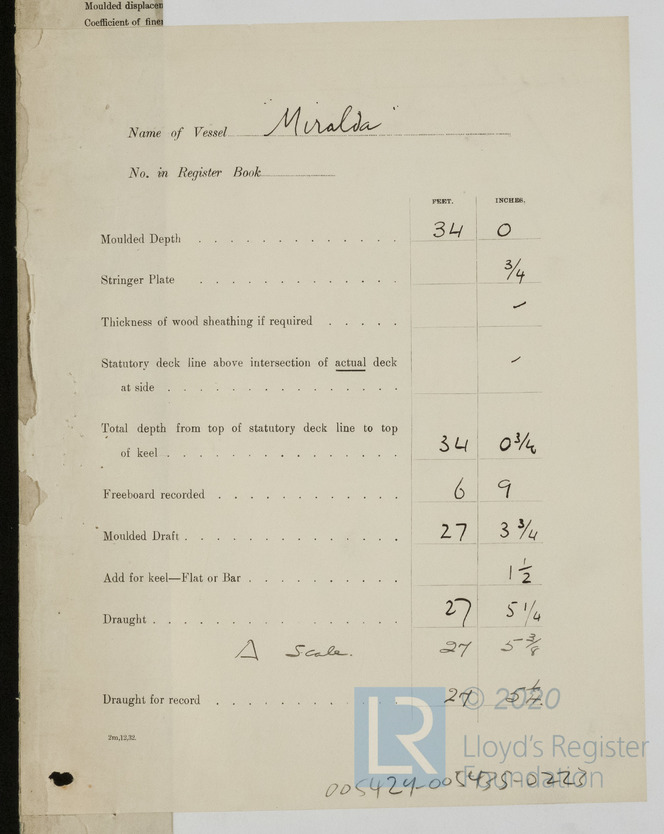 Moulded displacen
Coefficient of finen
Name of Vessel "Miralda"
No. in Register Book
FEET. INCHES.
Moulded Depth 34 0
Stringer Plate 3/4
Thickness of wood sheathing if required -
Statutory deck line above intersection of actual deck
at side -
Total depth from top of statutory deck line to top
of keel 34 0 3/4
Freeboard recorded 6 9
Moulded Draft 27 3 3/4
Add for keel—Flat or Bar 1 1/2
Draught 27 5 1/4
Δ Scale. 27 5 3/8
Draught for record 27 5 1/4
2m,12,32.
LR © 2020
Lloyd's Register
Foundation
005424-005435-0223